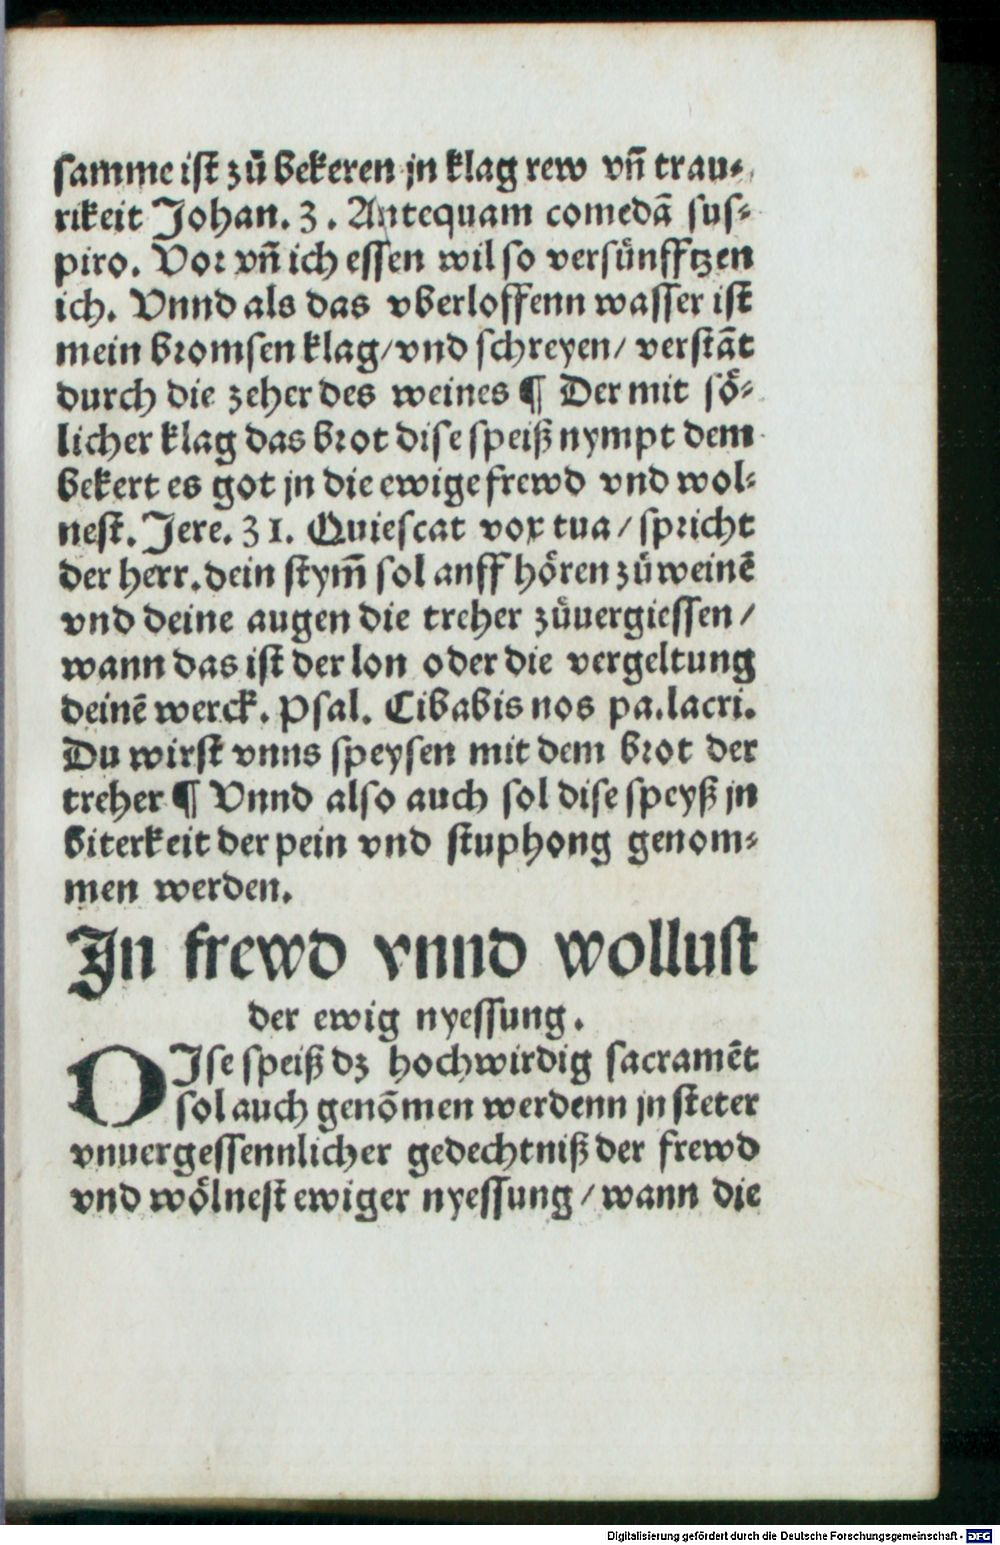 samme ist zů bekeren jn klag rew vñ trau⸗
rikeit Johan. 3. Antequam comedã sus⸗
piro. Vor vñ ich essen wil so versünfftzen
ich. Vnnd als das vberloffenn wasser ist
mein bromsen klag/vnd schreyen/ verstãt
durch die zeher des weines ¶ Der mit sö⸗
licher klag das brot dise speiß nympt dem
bekert es got jn die ewige frewd vnd wol⸗
nest. Jere. 31. Quiescat vox tua/ spricht
der herr. dein stym̃ sol anff hören zů weinẽ
vnd deine augen die treher zůuergiessen/
wann das ist der lon oder die vergeltung
deinẽ werck. Psal. Cibabis nos pa. lacri.
Du wirst vnns speysen mit dem brot der
treher ¶ Vnnd also auch sol dise speyß jn
biterkeit der pein vnd stuphong genom⸗
men werden.
Jn frewd vnnd wollust
der ewig nyessung.
DJse speiß dz hochwirdig sacramẽt
sol auch genõmen werdenn jn steter
vnuergessennlicher gedechtniß der frewd
vnd wölnest ewiger nyessung/ wann die
Digitalisierung gefördert durch die Deutsche Forschungsgemeinschaft - DFG